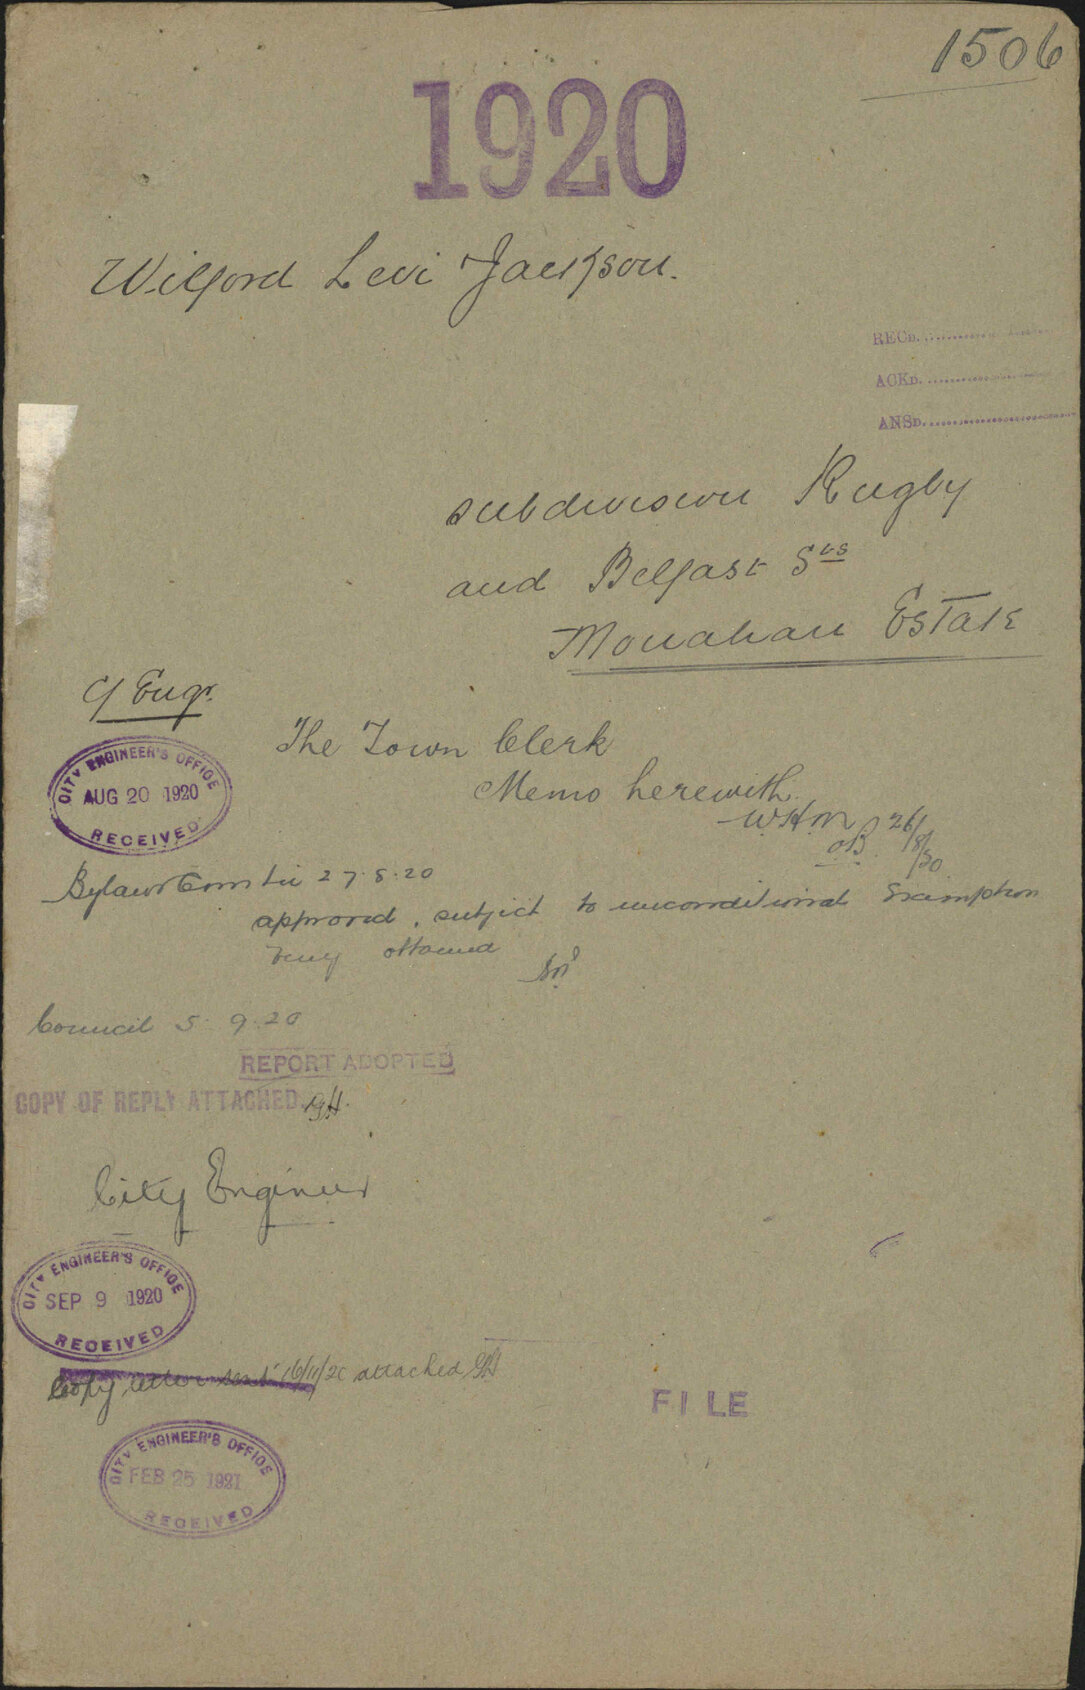 1506
1920
Wilford Levi Jackson.
RECD.
ACKD.
ANSD.
subdivision Rugby
and Belfast Sts
Monahan Estate
C/ Engr.
CITY ENGINEER'S OFFICE
AUG 20 1920
RECEIVED
The Town Clerk
Memo herewith.
WHM
26/8/20
Bylaws Comtee 27.8.20
approved, subject to unconditional Exemption
being obtained
Council 5.9.20
REPORT ADOPTED
COPY OF REPLY ATTACHED
City Engineer
CITY ENGINEER'S OFFICE
SEP 9 1920
RECEIVED
Copy letter sent 16/11/20 attached
FILE
CITY ENGINEER'S OFFICE
FEB 25 1921
RECEIVED